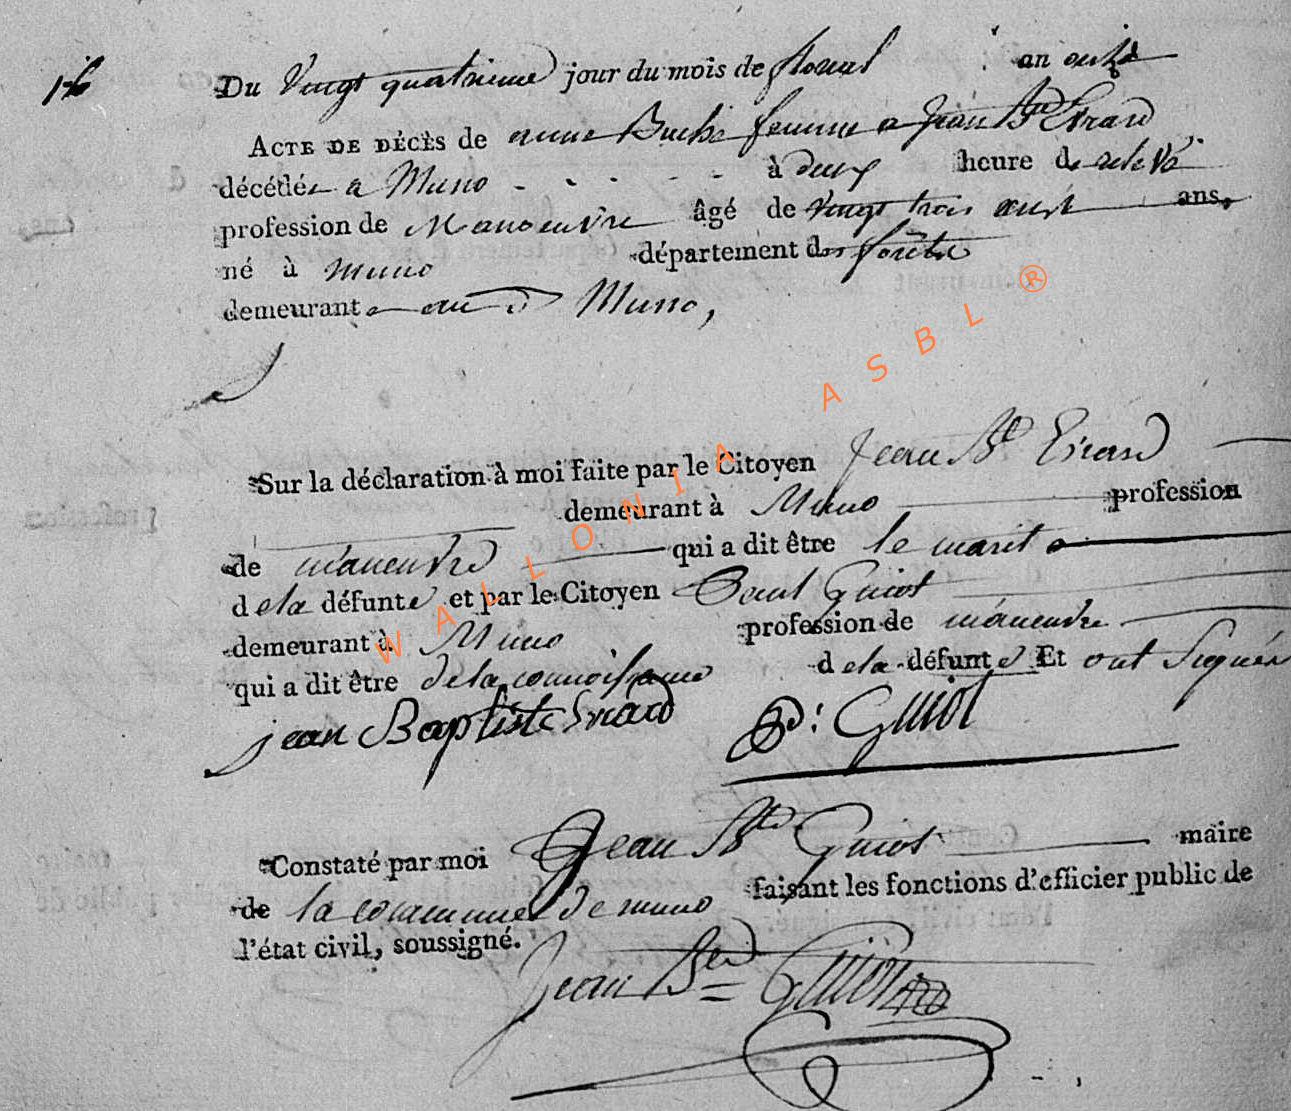 16
Du Vingt quatrieme jour du mois de floreal an onze
ACTE DE DÉCÈS de anne Buché femme a Jean Bte Evrard
décédée a Muno à deux heure de relevé
profession de Manoeuvre âgé de Vingt trois ans,
né à Muno département des forêts
demeurant a Muno,
Sur la déclaration à moi faite par le Citoyen Jean Bte Evrard
demeurant à Muno profession
de maneuvre qui a dit être le marit
de la défunte et par le Citoyen Paul Guiot
demeurant à Muno profession de maneuvre
qui a dit être de la connoissance de la défunte Et ont signés
jean Baptiste Evrard P: Guiot
Constaté par moi Jean Bte Guiot maire
de la commune de muno faisant les fonctions d'officier public de
l'état civil, soussigné.
Jean Bte Guiot
WALLONIA ASBL ®